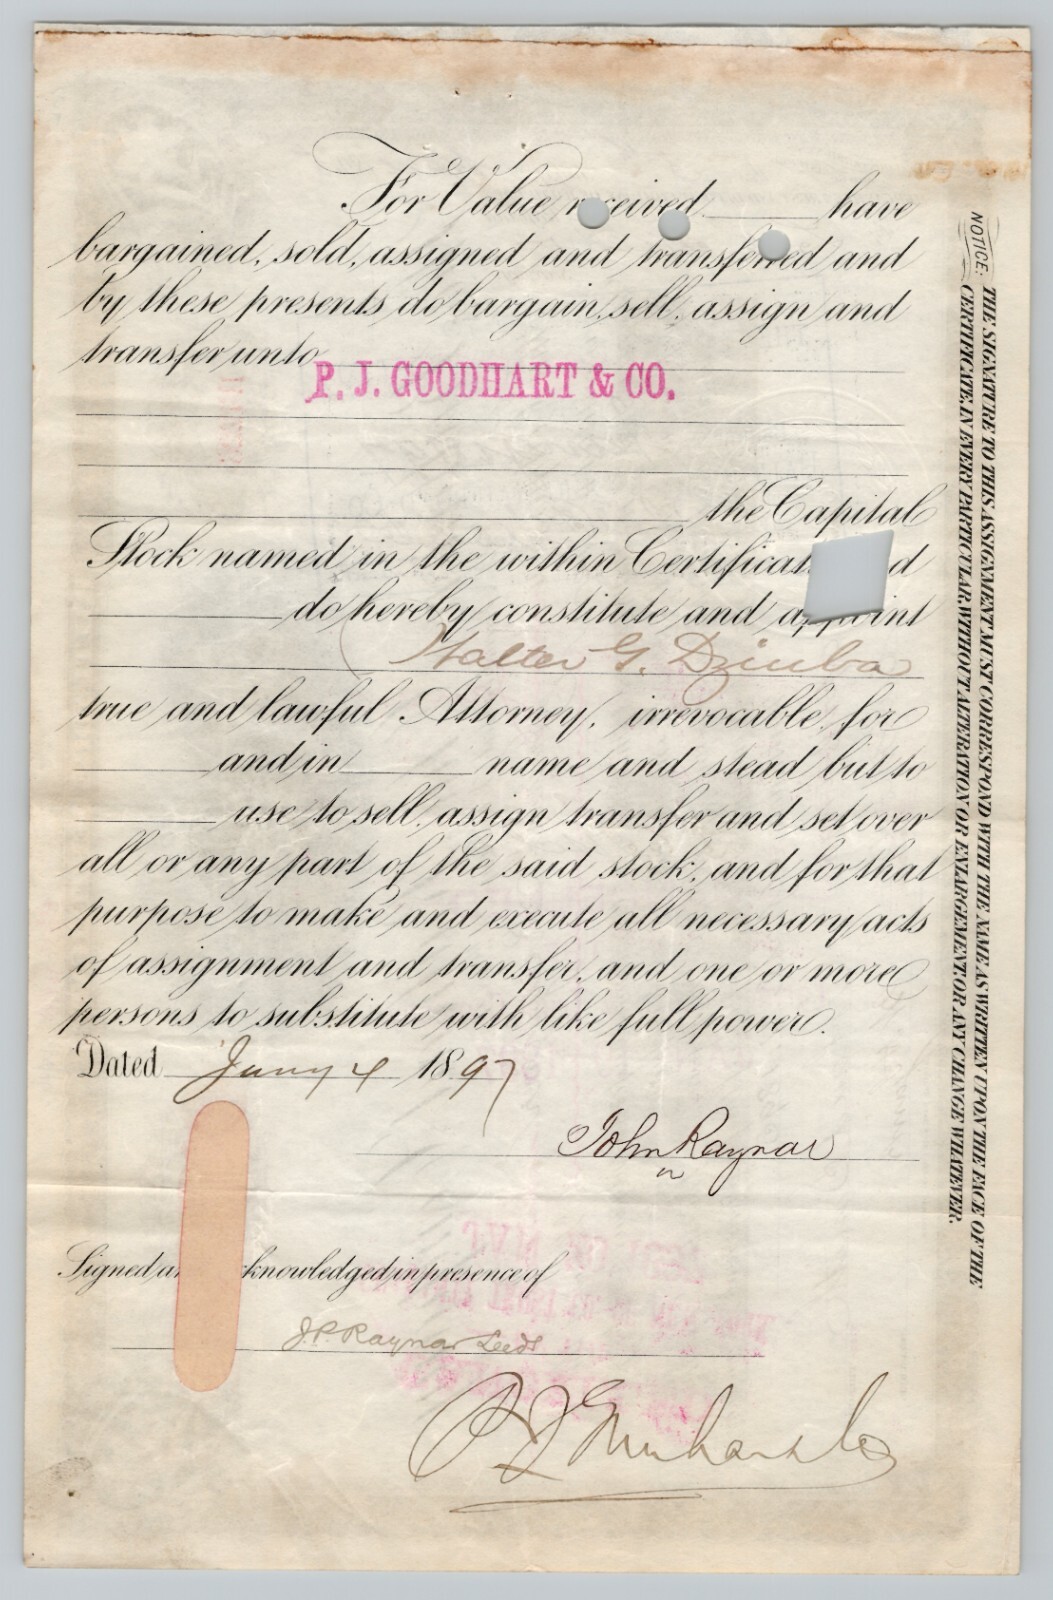 For Value received have
bargained, sold, assigned and transferred and
by these presents do bargain, sell, assign and
transfer unto
P. J. GOODHART & CO.
the Capital
Stock named in the within Certificate and
do hereby constitute and appoint
Walter G. Dziuba
true and lawful Attorney, irrevocable, for
and in name and stead but to
use to sell, assign transfer and set over
all or any part of the said stock, and for that
purpose to make and execute all necessary acts
of assignment and transfer, and one or more
persons to substitute with like full power.
Dated Jany 4 1897
John Raynar
Signed and acknowledged in presence of
J.P. Raynar Leeds
NOTICE: THE SIGNATURE TO THIS ASSIGNMENT MUST CORRESPOND WITH THE NAME AS WRITTEN UPON THE FACE OF THE
CERTIFICATE, IN EVERY PARTICULAR WITHOUT ALTERATION OR ENLARGEMENT, OR ANY CHANGE WHATEVER.